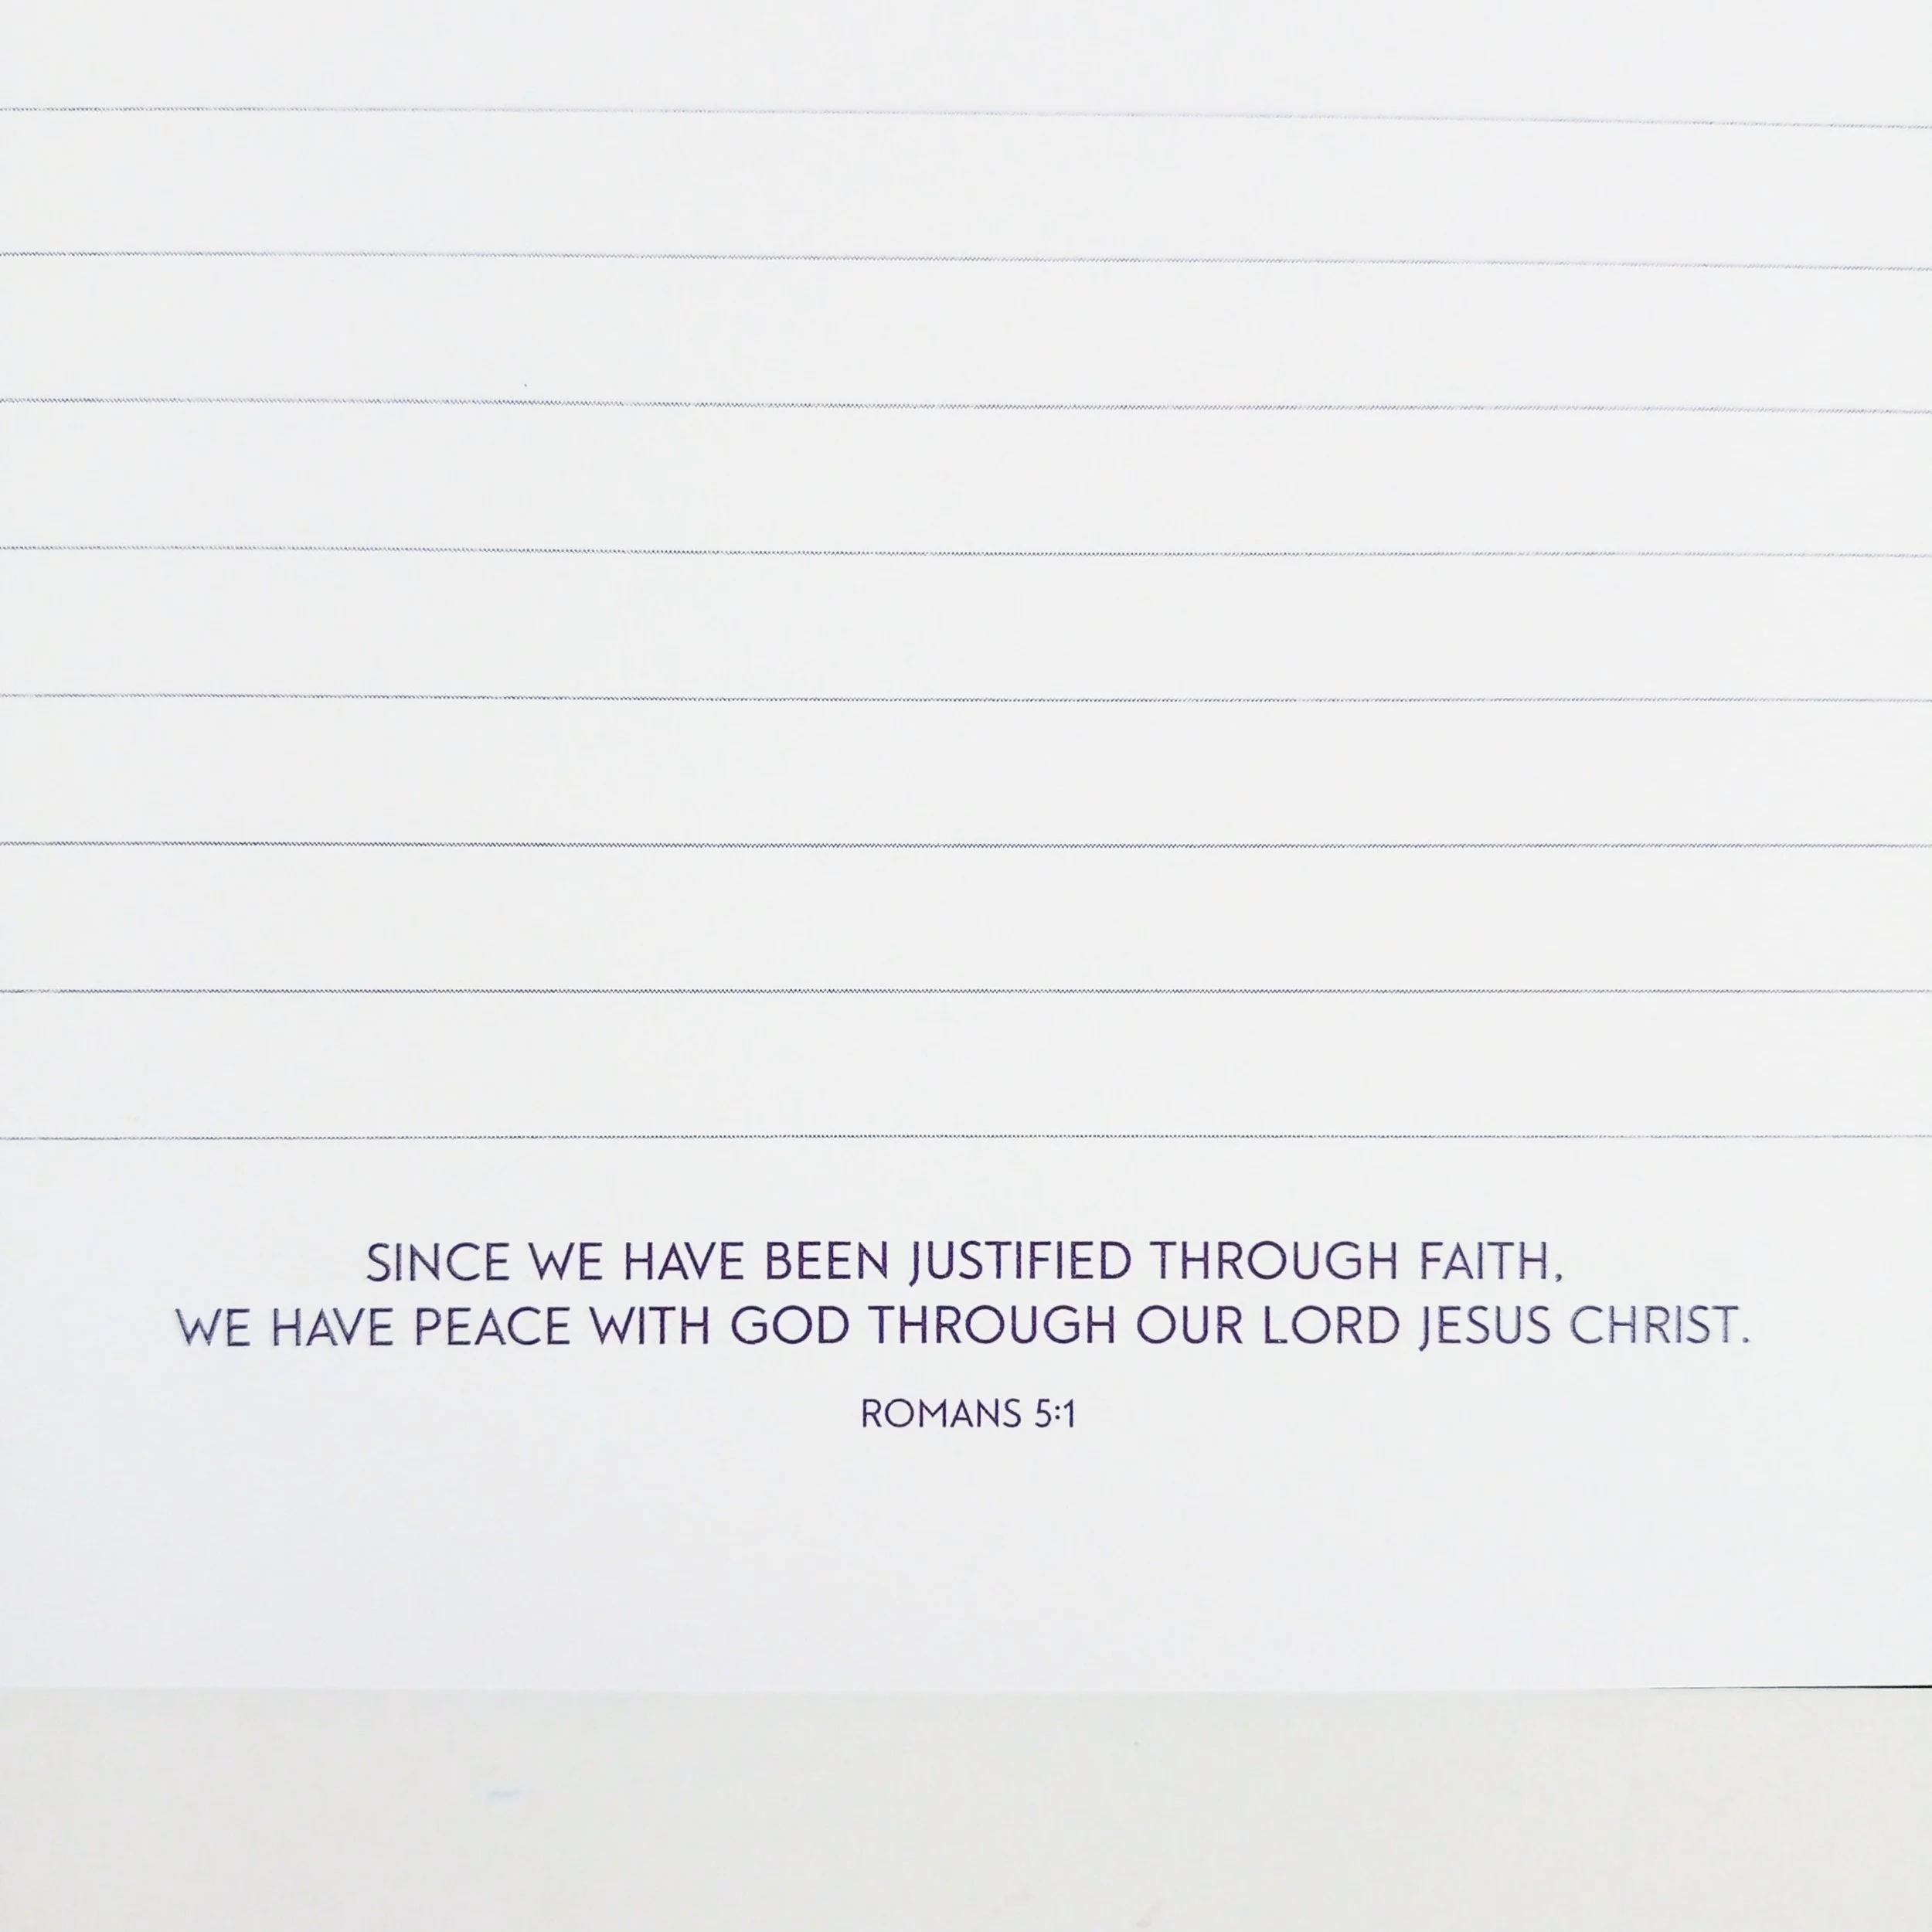 SINCE WE HAVE BEEN JUSTIFIED THROUGH FAITH,
WE HAVE PEACE WITH GOD THROUGH OUR LORD JESUS CHRIST.
ROMANS 5:1